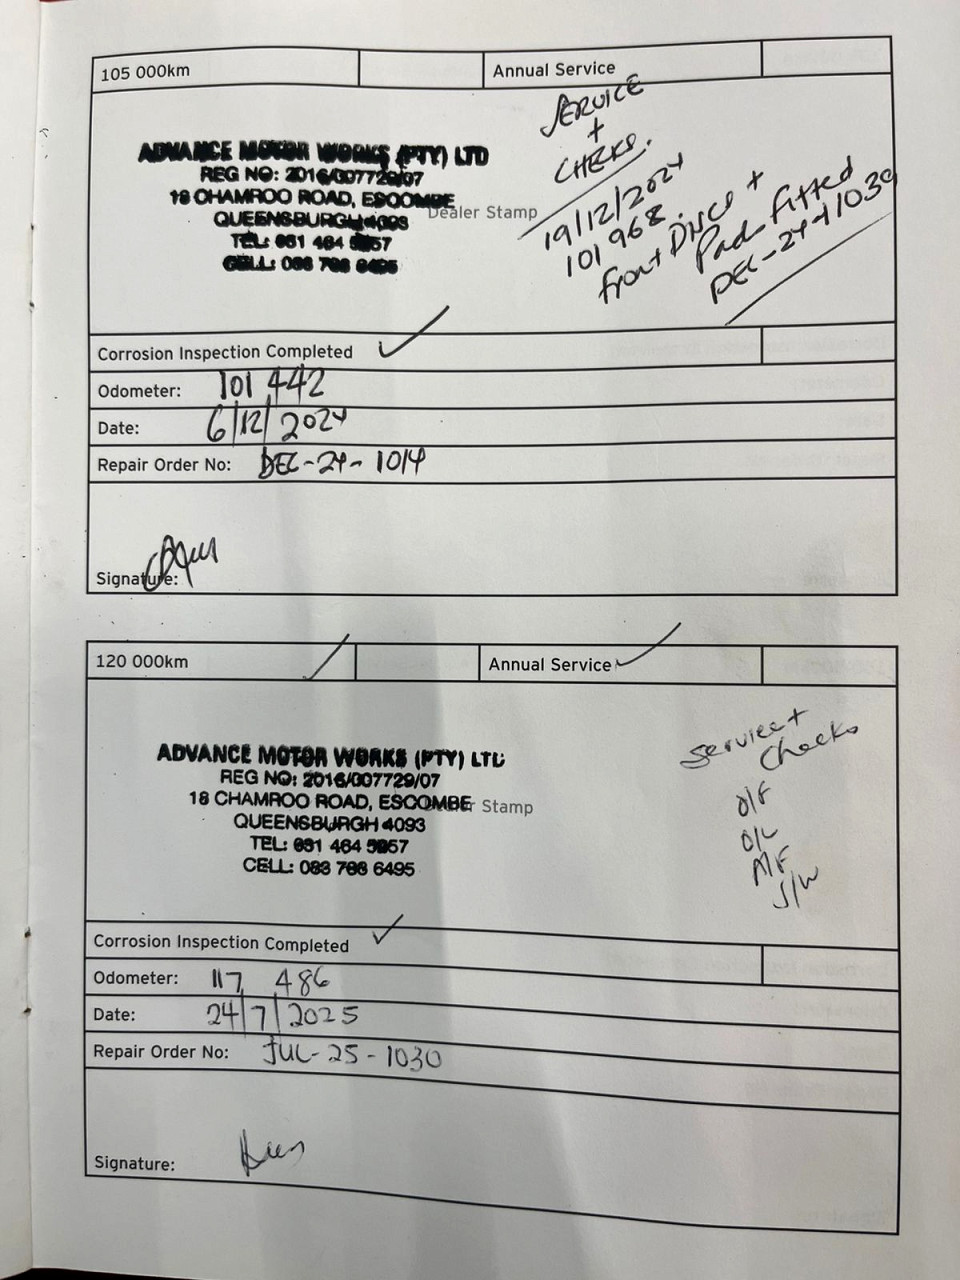 105 000km
Annual Service
ADVANCE MOTOR WORKS (PTY) LTD
REG NO: 2016/007729/07
18 CHAMROO ROAD, ESCOMBE
QUEENSBURGH 4093
TEL: 031 464 5957
CELL: 083 786 6495
Dealer Stamp
SERVICE
+
CHECKS.
19/12/2024
101 968
Front Discs +
Pads Fitted
DEC-24-1030
Corrosion Inspection Completed
Odometer: 101 442
Date: 6/12/2024
Repair Order No: DEC-24-1014
Signature:
120 000km
Annual Service
ADVANCE MOTOR WORKS (PTY) LTD
REG NO: 2016/007729/07
18 CHAMROO ROAD, ESCOMBE
Dealer Stamp
QUEENSBURGH 4093
TEL: 031 464 5957
CELL: 083 786 6495
Service +
Checks
O/F
O/L
A/F
S/W
Corrosion Inspection Completed
Odometer: 117 486
Date: 24/7/2025
Repair Order No: JUL-25-1030
Signature: